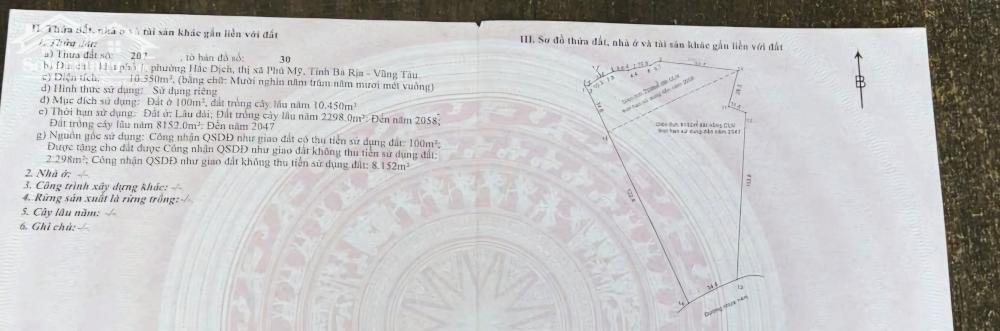 II. Thửa đất, nhà ở và tài sản khác gắn liền với đất
1. Thửa đất:
a) Thửa đất số: 20 , tờ bản đồ số: 30
b) Địa chỉ: phường Hắc Dịch, thị xã Phú Mỹ, Tỉnh Bà Rịa - Vũng Tàu
c) Diện tích: 10.550m², (bằng chữ: Mười nghìn năm trăm năm mươi mét vuông)
d) Hình thức sử dụng: Sử dụng riêng
đ) Mục đích sử dụng: Đất ở 100m², đất trồng cây lâu năm 10.450m²
e) Thời hạn sử dụng: Đất ở: Lâu dài; Đất trồng cây lâu năm 2298.0m²: Đến năm 2058;
Đất trồng cây lâu năm 8152.0m²: Đến năm 2047
g) Nguồn gốc sử dụng: Công nhận QSDĐ như giao đất có thu tiền sử dụng đất: 100m²;
Được tặng cho đất được Công nhận QSDĐ như giao đất không thu tiền sử dụng đất:
2.298m²; Công nhận QSDĐ như giao đất không thu tiền sử dụng đất: 8.152m²
2. Nhà ở: -/-
3. Công trình xây dựng khác: -/-
4. Rừng sản xuất là rừng trồng: -/-
5. Cây lâu năm: -/-
6. Ghi chú: -/-
III. Sơ đồ thửa đất, nhà ở và tài sản khác gắn liền với đất
B
thời hạn sử dụng đến năm 2058
Diện tích 8152m² đất trồng CLN
thời hạn sử dụng đến năm 2047
Đường nhựa 14m